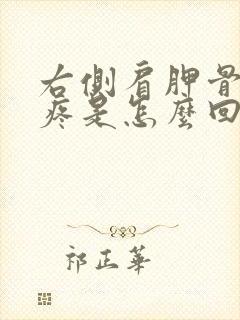 右側肩胛骨
疼是怎麼回
祁正華